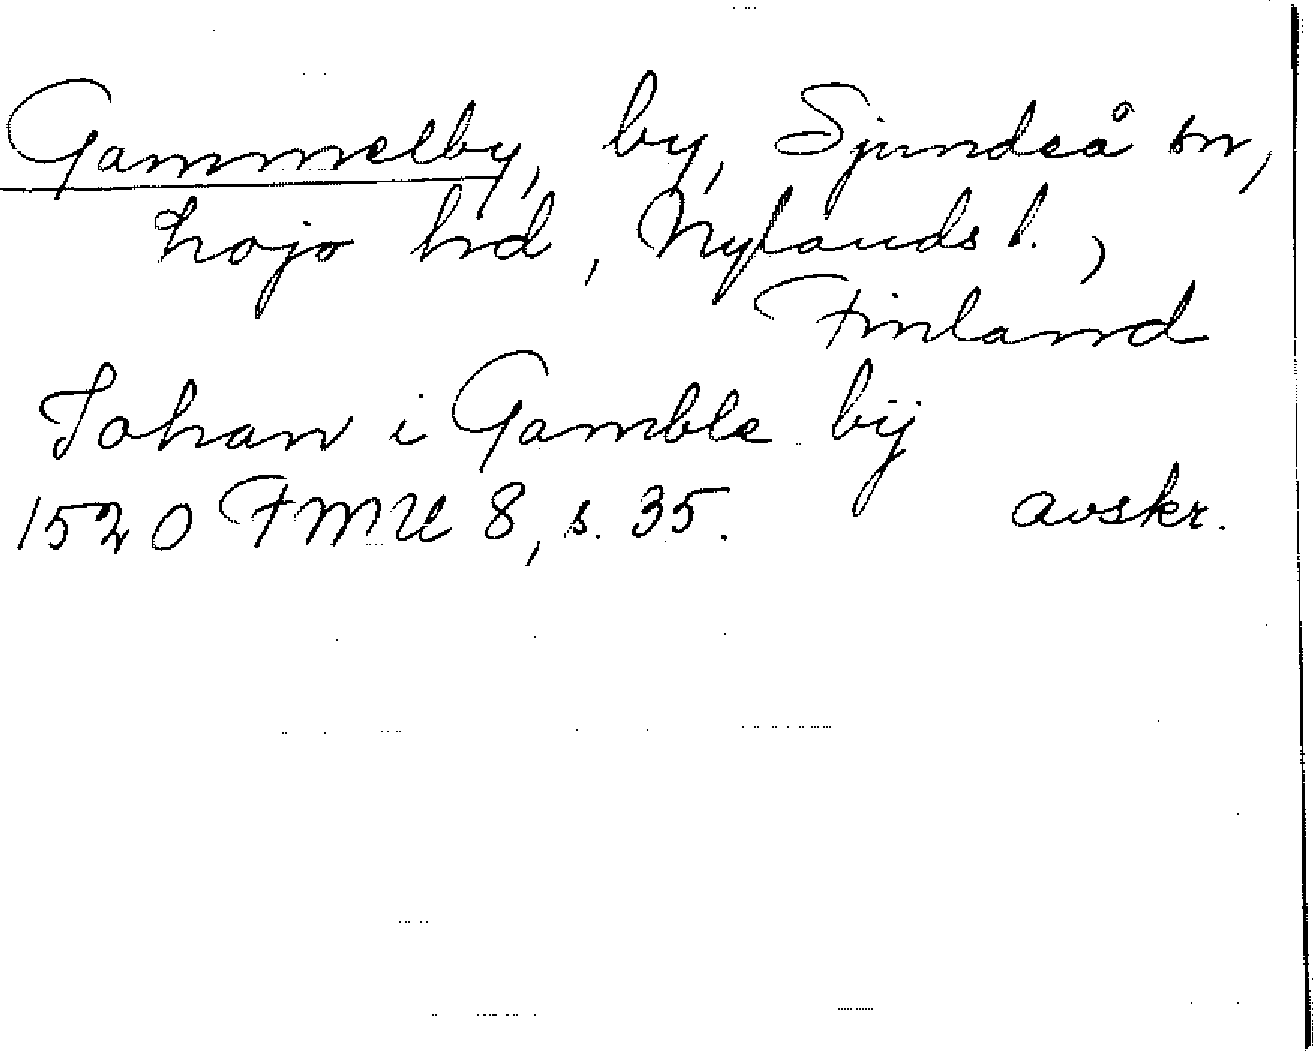 Gammelby, by, Sjundeå sn,
Lojo hd, Nylands l.,
Finland
Johan i Gamble bij
1520 FMU 8, s. 35. avskr.